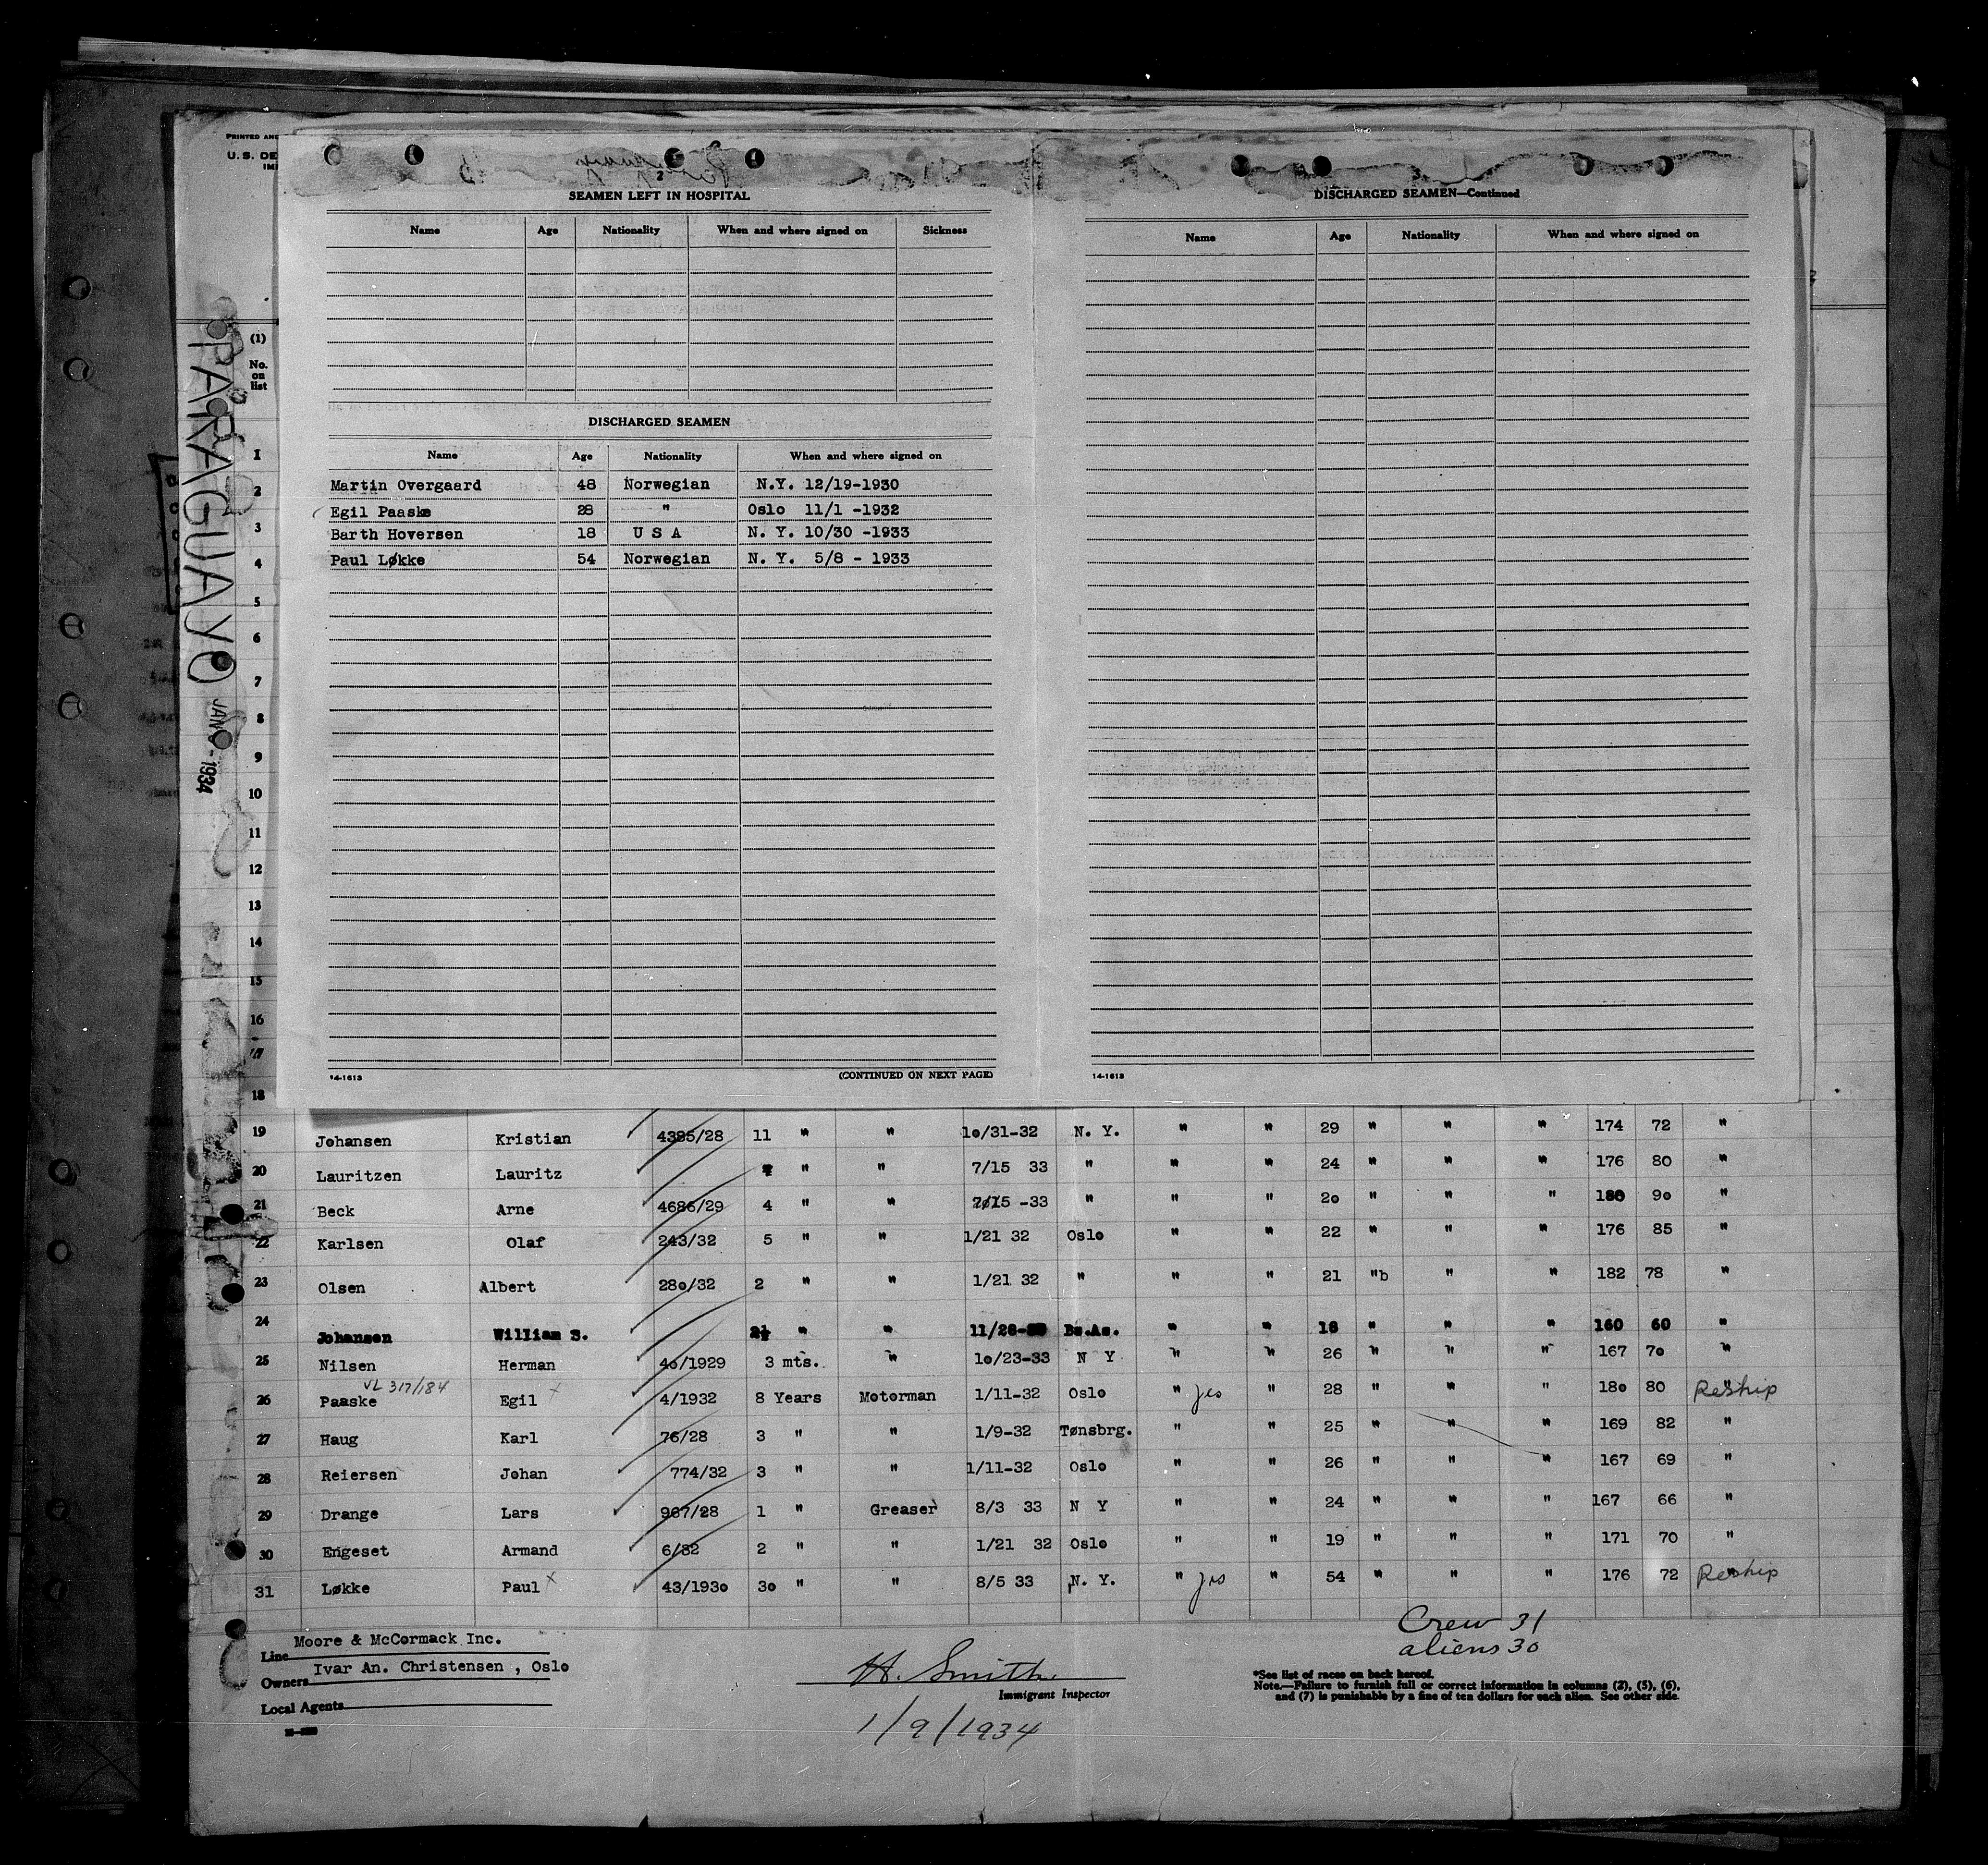 PRINTED AND
U. S. DE
IM
PARAGUAYO
JAN 9 - 1934
2
SEAMEN LEFT IN HOSPITAL
Name Age Nationality When and where signed on Sickness
DISCHARGED SEAMEN
Name Age Nationality When and where signed on
Martin Overgaard 48 Norwegian N.Y. 12/19-1930
Egil Paaske 28 " Oslo 11/1 -1932
Barth Hoversen 18 U S A N. Y. 10/30 -1933
Paul Løkke 54 Norwegian N. Y. 5/8 - 1933
14-1613 (CONTINUED ON NEXT PAGE)
3
DISCHARGED SEAMEN—Continued
Name Age Nationality When and where signed on
14-1613
(1)
No.
on
list
1
2
3
4
5
6
7
8
9
10
11
12
13
14
15
16
17
18
19 Johansen Kristian 4385/28 11 " " 10/31-32 N. Y. " " 29 " " " 174 72 "
20 Lauritzen Lauritz 4 " " 7/15 33 " " " 24 " " " 176 80 "
21 Beck Arne 4686/29 4 " " 7/15 -33 " " " 20 " " " 180 90 "
22 Karlsen Olaf 243/32 5 " " 1/21 32 Oslo " " 22 " " " 176 85 "
23 Olsen Albert 280/32 2 " " 1/21 32 " " " 21 "b " " 182 78 "
24 Johansen William S. 2½ " " 11/28- Bs.As. " " 18 " " " 160 60 "
25 Nilsen Herman 40/1929 3 mts. " 10/23-33 N Y " " 26 " " " 167 70 "
VL 317/184
26 Paaske Egil x 4/1932 8 Years Motorman 1/11-32 Oslo " yes " 28 " " " 180 80 " Reship
27 Haug Karl 76/28 3 " " 1/9-32 Tønsbrg. " " 25 " " " 169 82 "
28 Reiersen Johan 774/32 3 " " 1/11-32 Oslo " " 26 " " " 167 69 "
29 Drange Lars 967/28 1 " Greaser 8/3 33 N Y " " 24 " " " 167 66 "
30 Engeset Armand 6/32 2 " " 1/21 32 Oslo " " 19 " " " 171 70 "
31 Løkke Paul x 43/1930 30 " " 8/5 33 N. Y. " yes " 54 " " " 176 72 " Reship
Crew 31
aliens 30
Line Moore & McCormack Inc.
Owners Ivar An. Christensen , Oslo
Local Agents
H. Smith
Immigrant Inspector
1/9/1934
*See list of races on back hereof.
Note.—Failure to furnish full or correct information in columns (2), (5), (6),
and (7) is punishable by a fine of ten dollars for each alien. See other side.